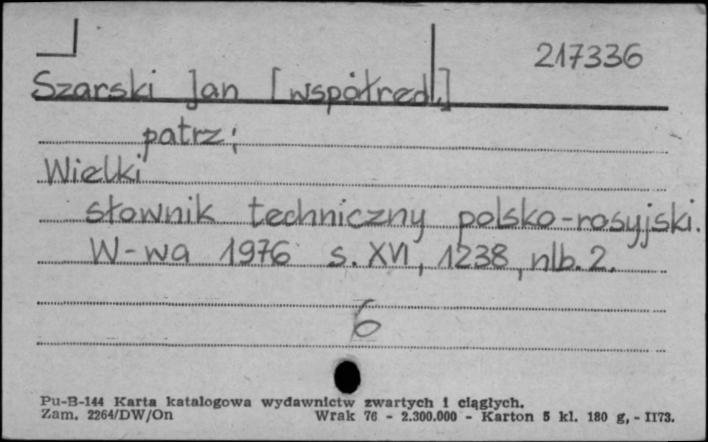 217336
Szarski Jan [współred.]
patrz:
Wielki
słownik techniczny polsko-rosyjski.
W-wa 1976 s. XVI, 1238, nlb. 2.
6
Pu-B-144 Karta katalogowa wydawnictw zwartych i ciągłych.
Zam. 2264/DW/On Wrak 76 - 2.300.000 - Karton 5 kl. 180 g, - II73.